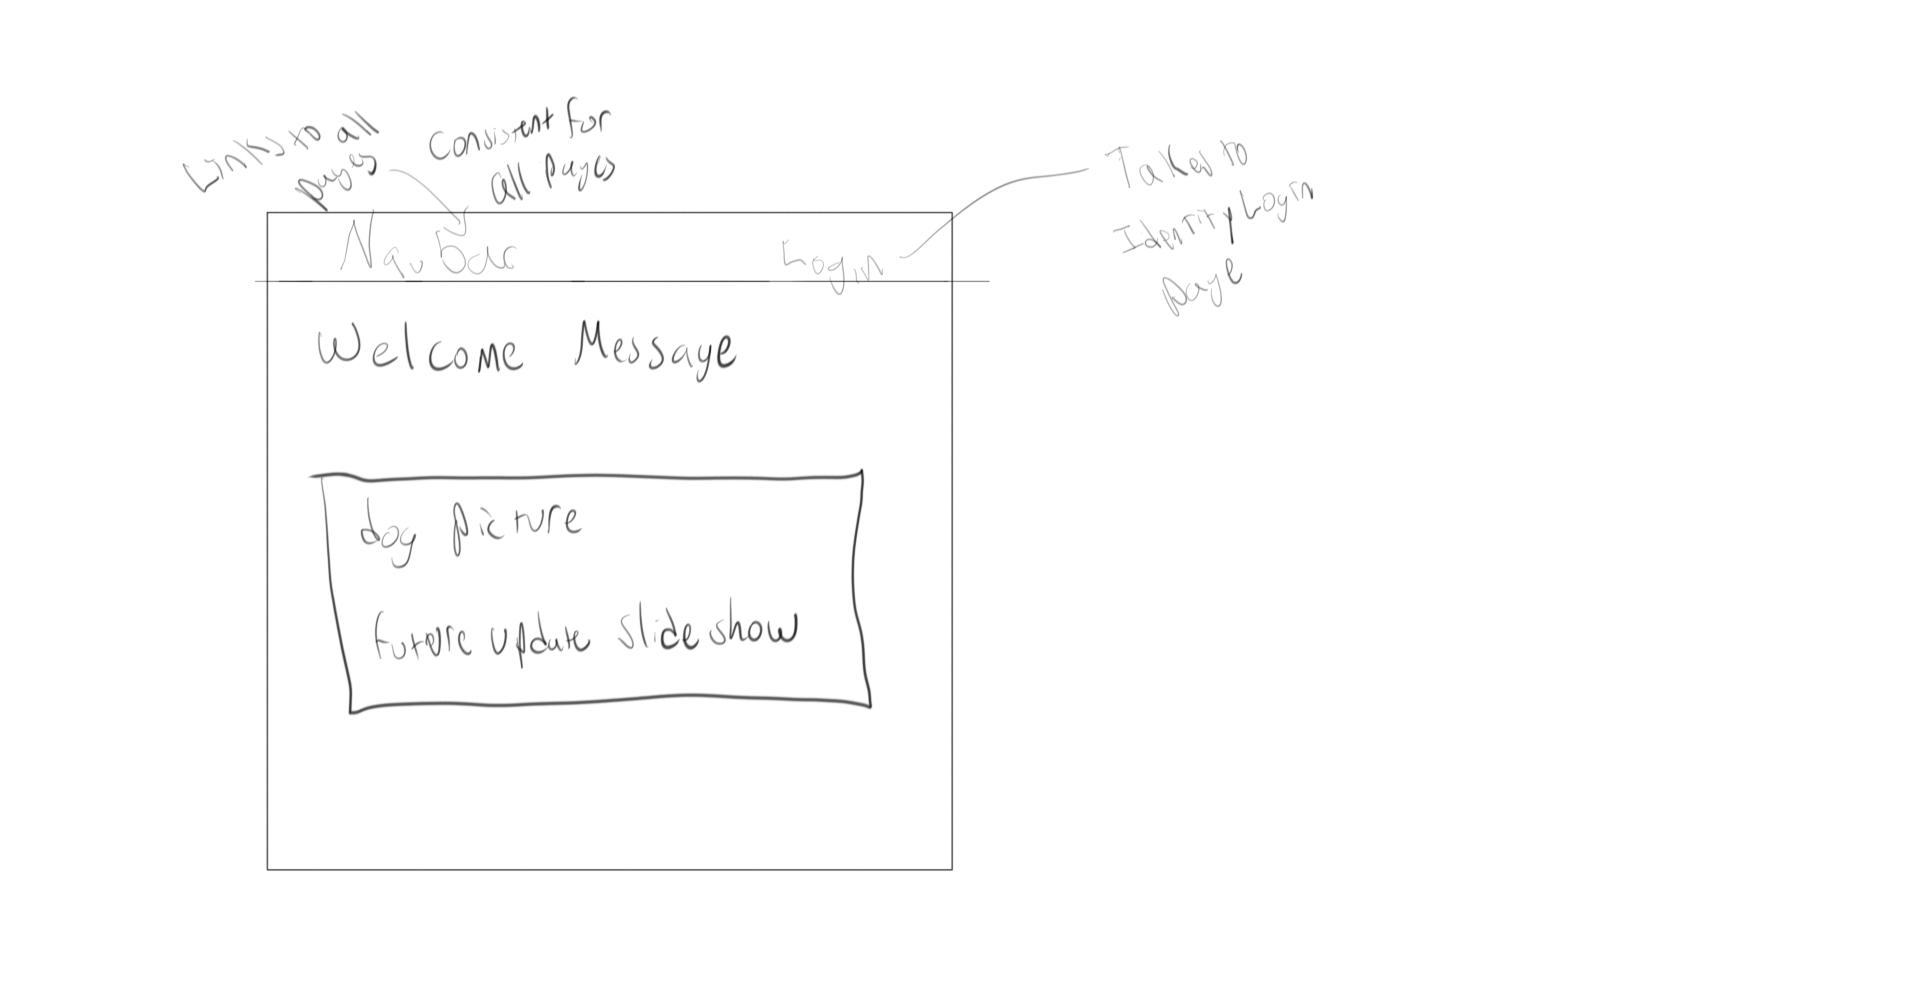 Links to all
pages
Consistent for
all pages
Takes to
Identity Login
page
Nav bar
Login
Welcome Message
dog picture
future update slide show